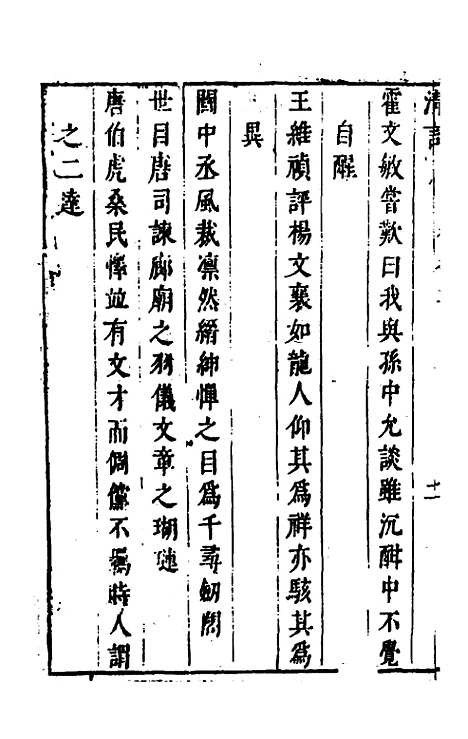 霍文敏嘗歎曰我與孫中允談雖沉酣中不覺
自醒
王維禎評楊文襄如龍人仰其為祥亦駭其為
異
閻中丞風裁凛然縉紳憚之目為千尋劒閣
世目唐司諫廊廟之羽儀文章之瑚璉
唐伯虎桑民懌並有文才而倜儻不羈時人謂
之二達